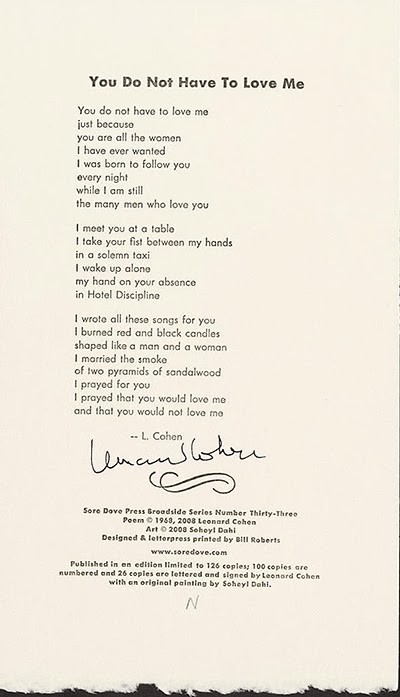 You Do Not Have To Love Me
You do not have to love me
just because
you are all the women
I have ever wanted
I was born to follow you
every night
while I am still
the many men who love you
I meet you at a table
I take your fist between my hands
in a solemn taxi
I wake up alone
my hand on your absence
in Hotel Discipline
I wrote all these songs for you
I burned red and black candles
shaped like a man and a woman
I married the smoke
of two pyramids of sandalwood
I prayed for you
I prayed that you would love me
and that you would not love me
-- L. Cohen
Leonard Cohen
Sore Dove Press Broadside Series Number Thirty-Three
Poem © 1968, 2008 Leonard Cohen
Art © 2008 Soheyl Dahi
Designed & letterpress printed by Bill Roberts
www.soredove.com
Published in an edition limited to 126 copies; 100 copies are
numbered and 26 copies are lettered and signed by Leonard Cohen
with an original painting by Soheyl Dahi.
N